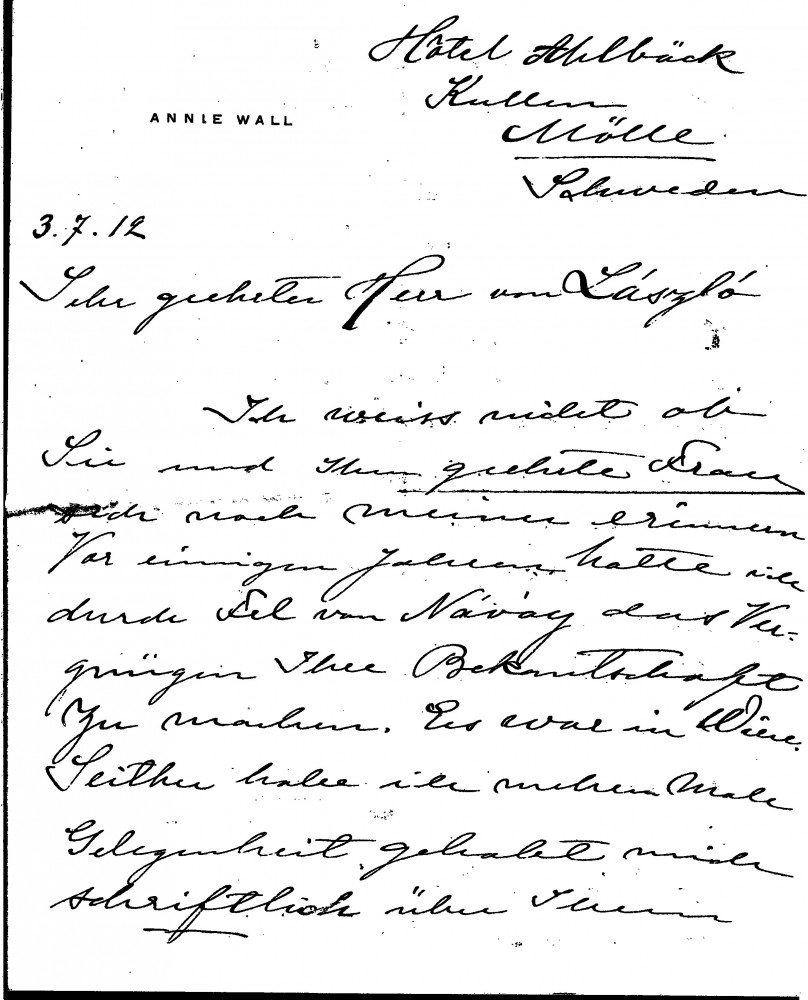 Hôtel Ahlbäck
Kullen
ANNIE WALL
Mölle
Schweden
3.7.12
Sehr geehrter Herr von László
Ich weiss nicht ob
Sie und Ihre geehrte Frau
sich noch meiner erinnern
Vor einigen Jahren hatte ich
durch Frl von Návay das Ver-
gnügen Ihre Bekantschaft
Zu machen. Es war in Wien.
Seither habe ich mehrere Male
Gelegenheit gehabt mich
schriftlich über Ihren